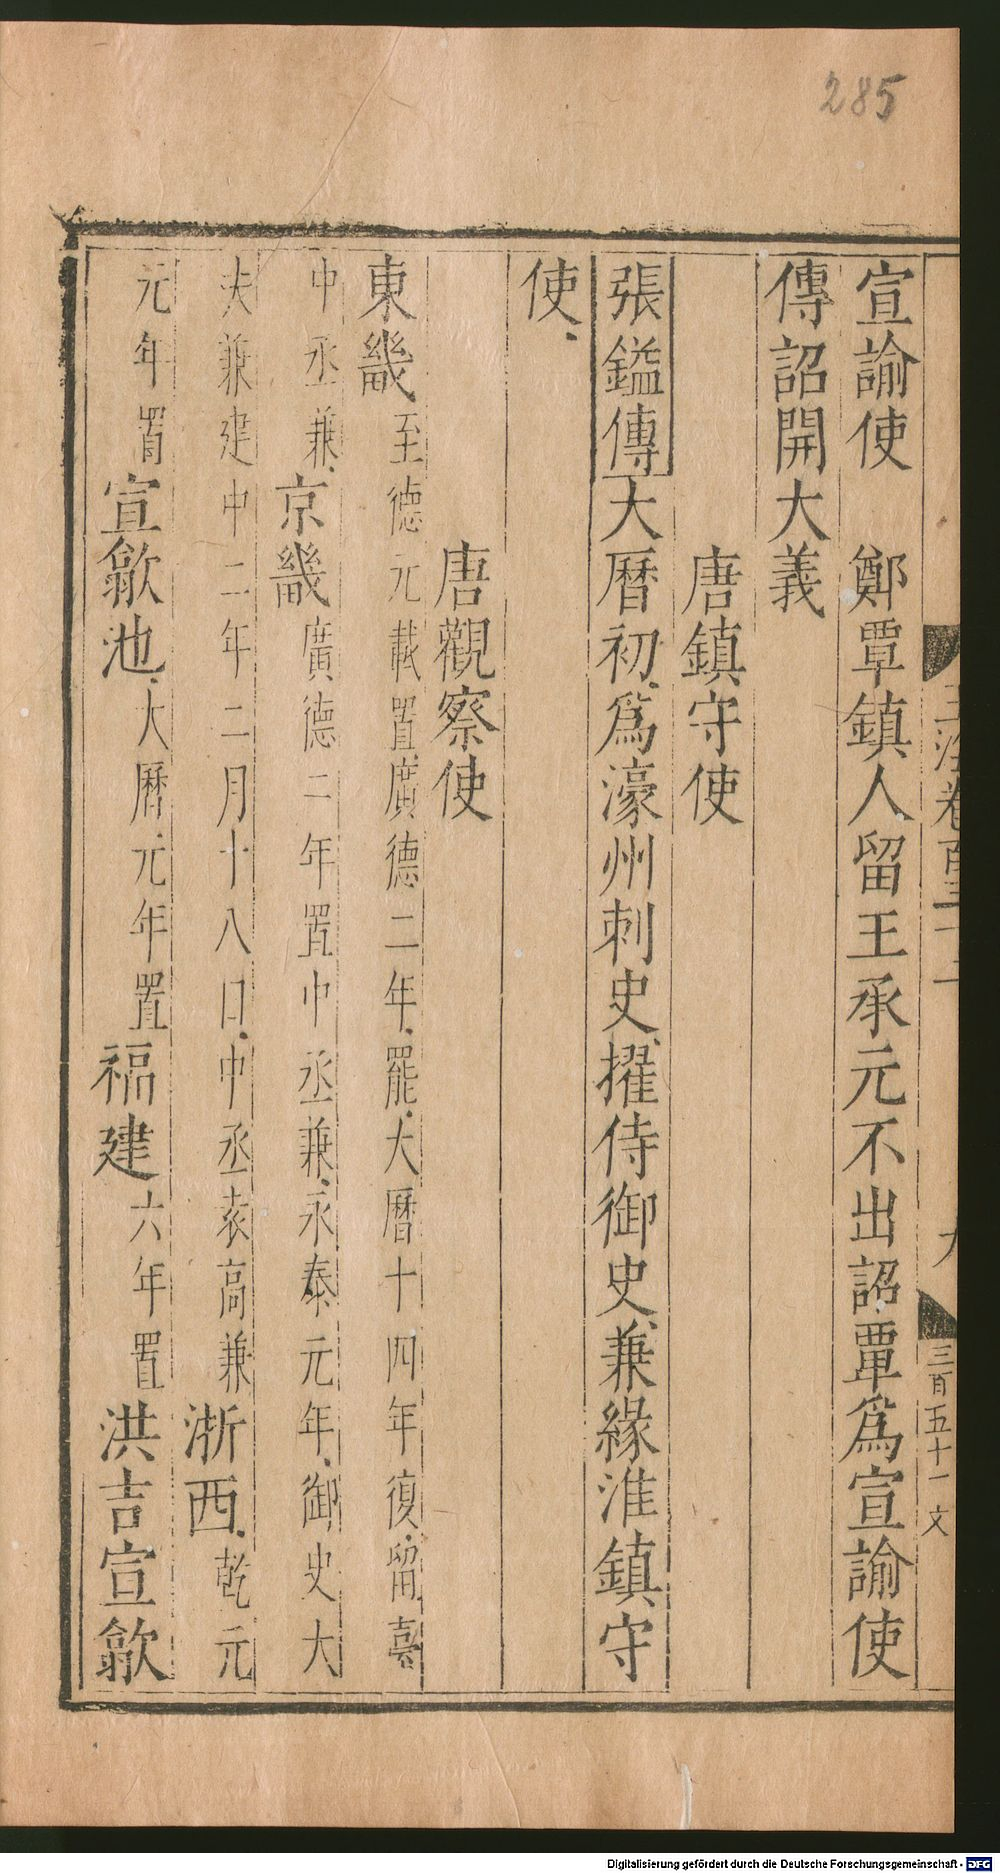 285
宣諭使　鄭覃鎮人留王承元不出詔覃為宣諭使
傳詔開大義
唐鎮守使
張鎰傳大曆初、為濠州刺史、擢侍御史、兼緣淮鎮守
使、
唐觀察使
東畿至德元載置廣德二年、罷、大曆十四年復、留臺
中丞兼、京畿廣德二年置中丞兼、永泰元年、御史大
夫兼建中二年二月十八日、中丞袁高兼浙西、乾元
元年置宣歙池、大曆元年置福建六年置洪吉宣歙
三百五十一　文
Digitalisierung gefördert durch die Deutsche Forschungsgemeinschaft - DFG